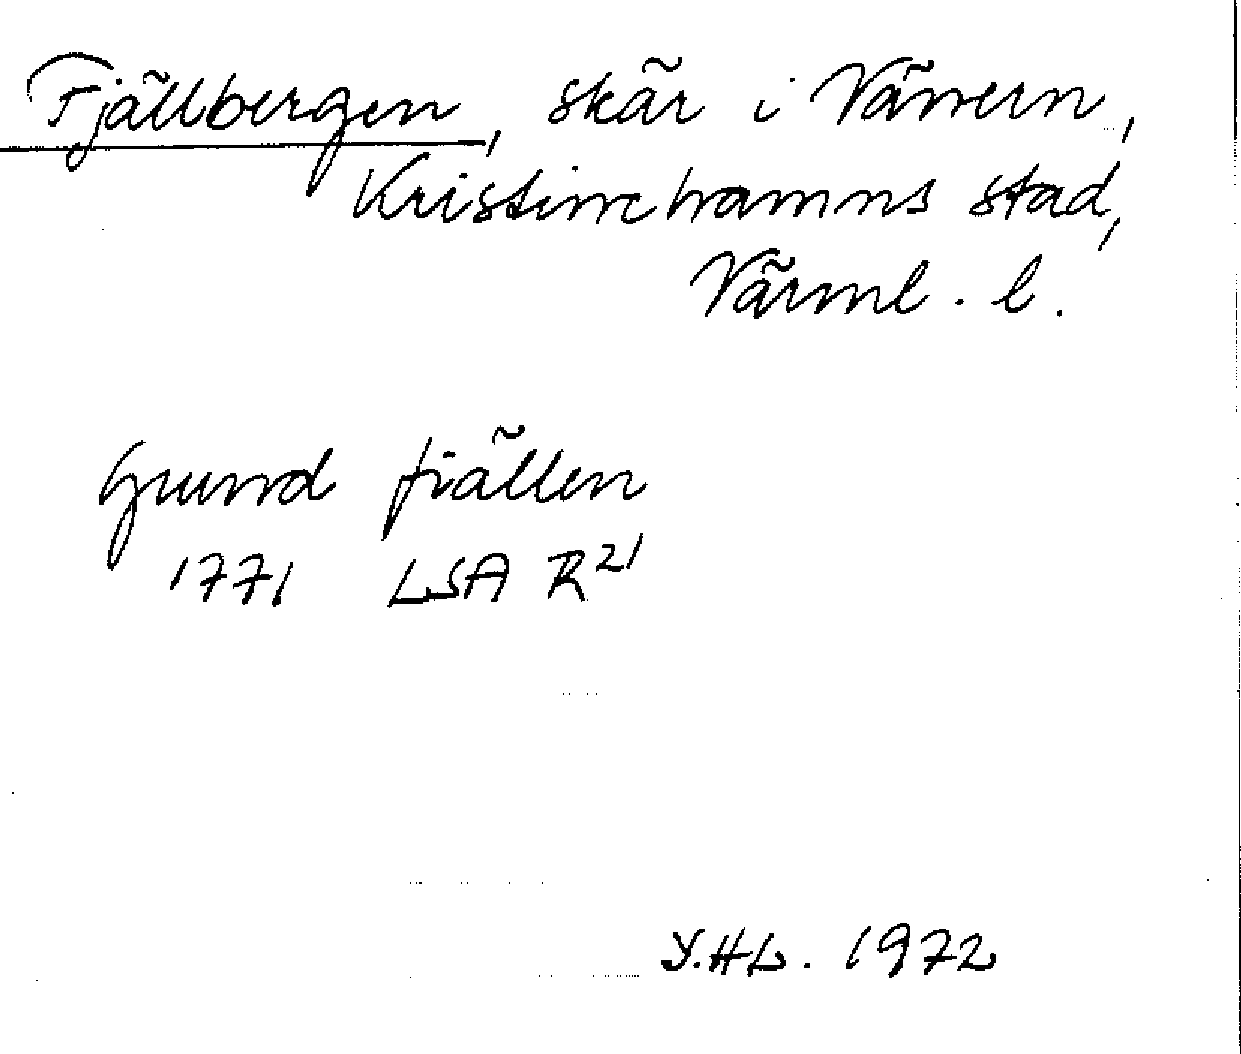 Fjällbergen, skär i Vänern,
Kristinehamns stad,
Värml. l.
Grund fiällen
1771 LSA R21
Y.HL. 1972